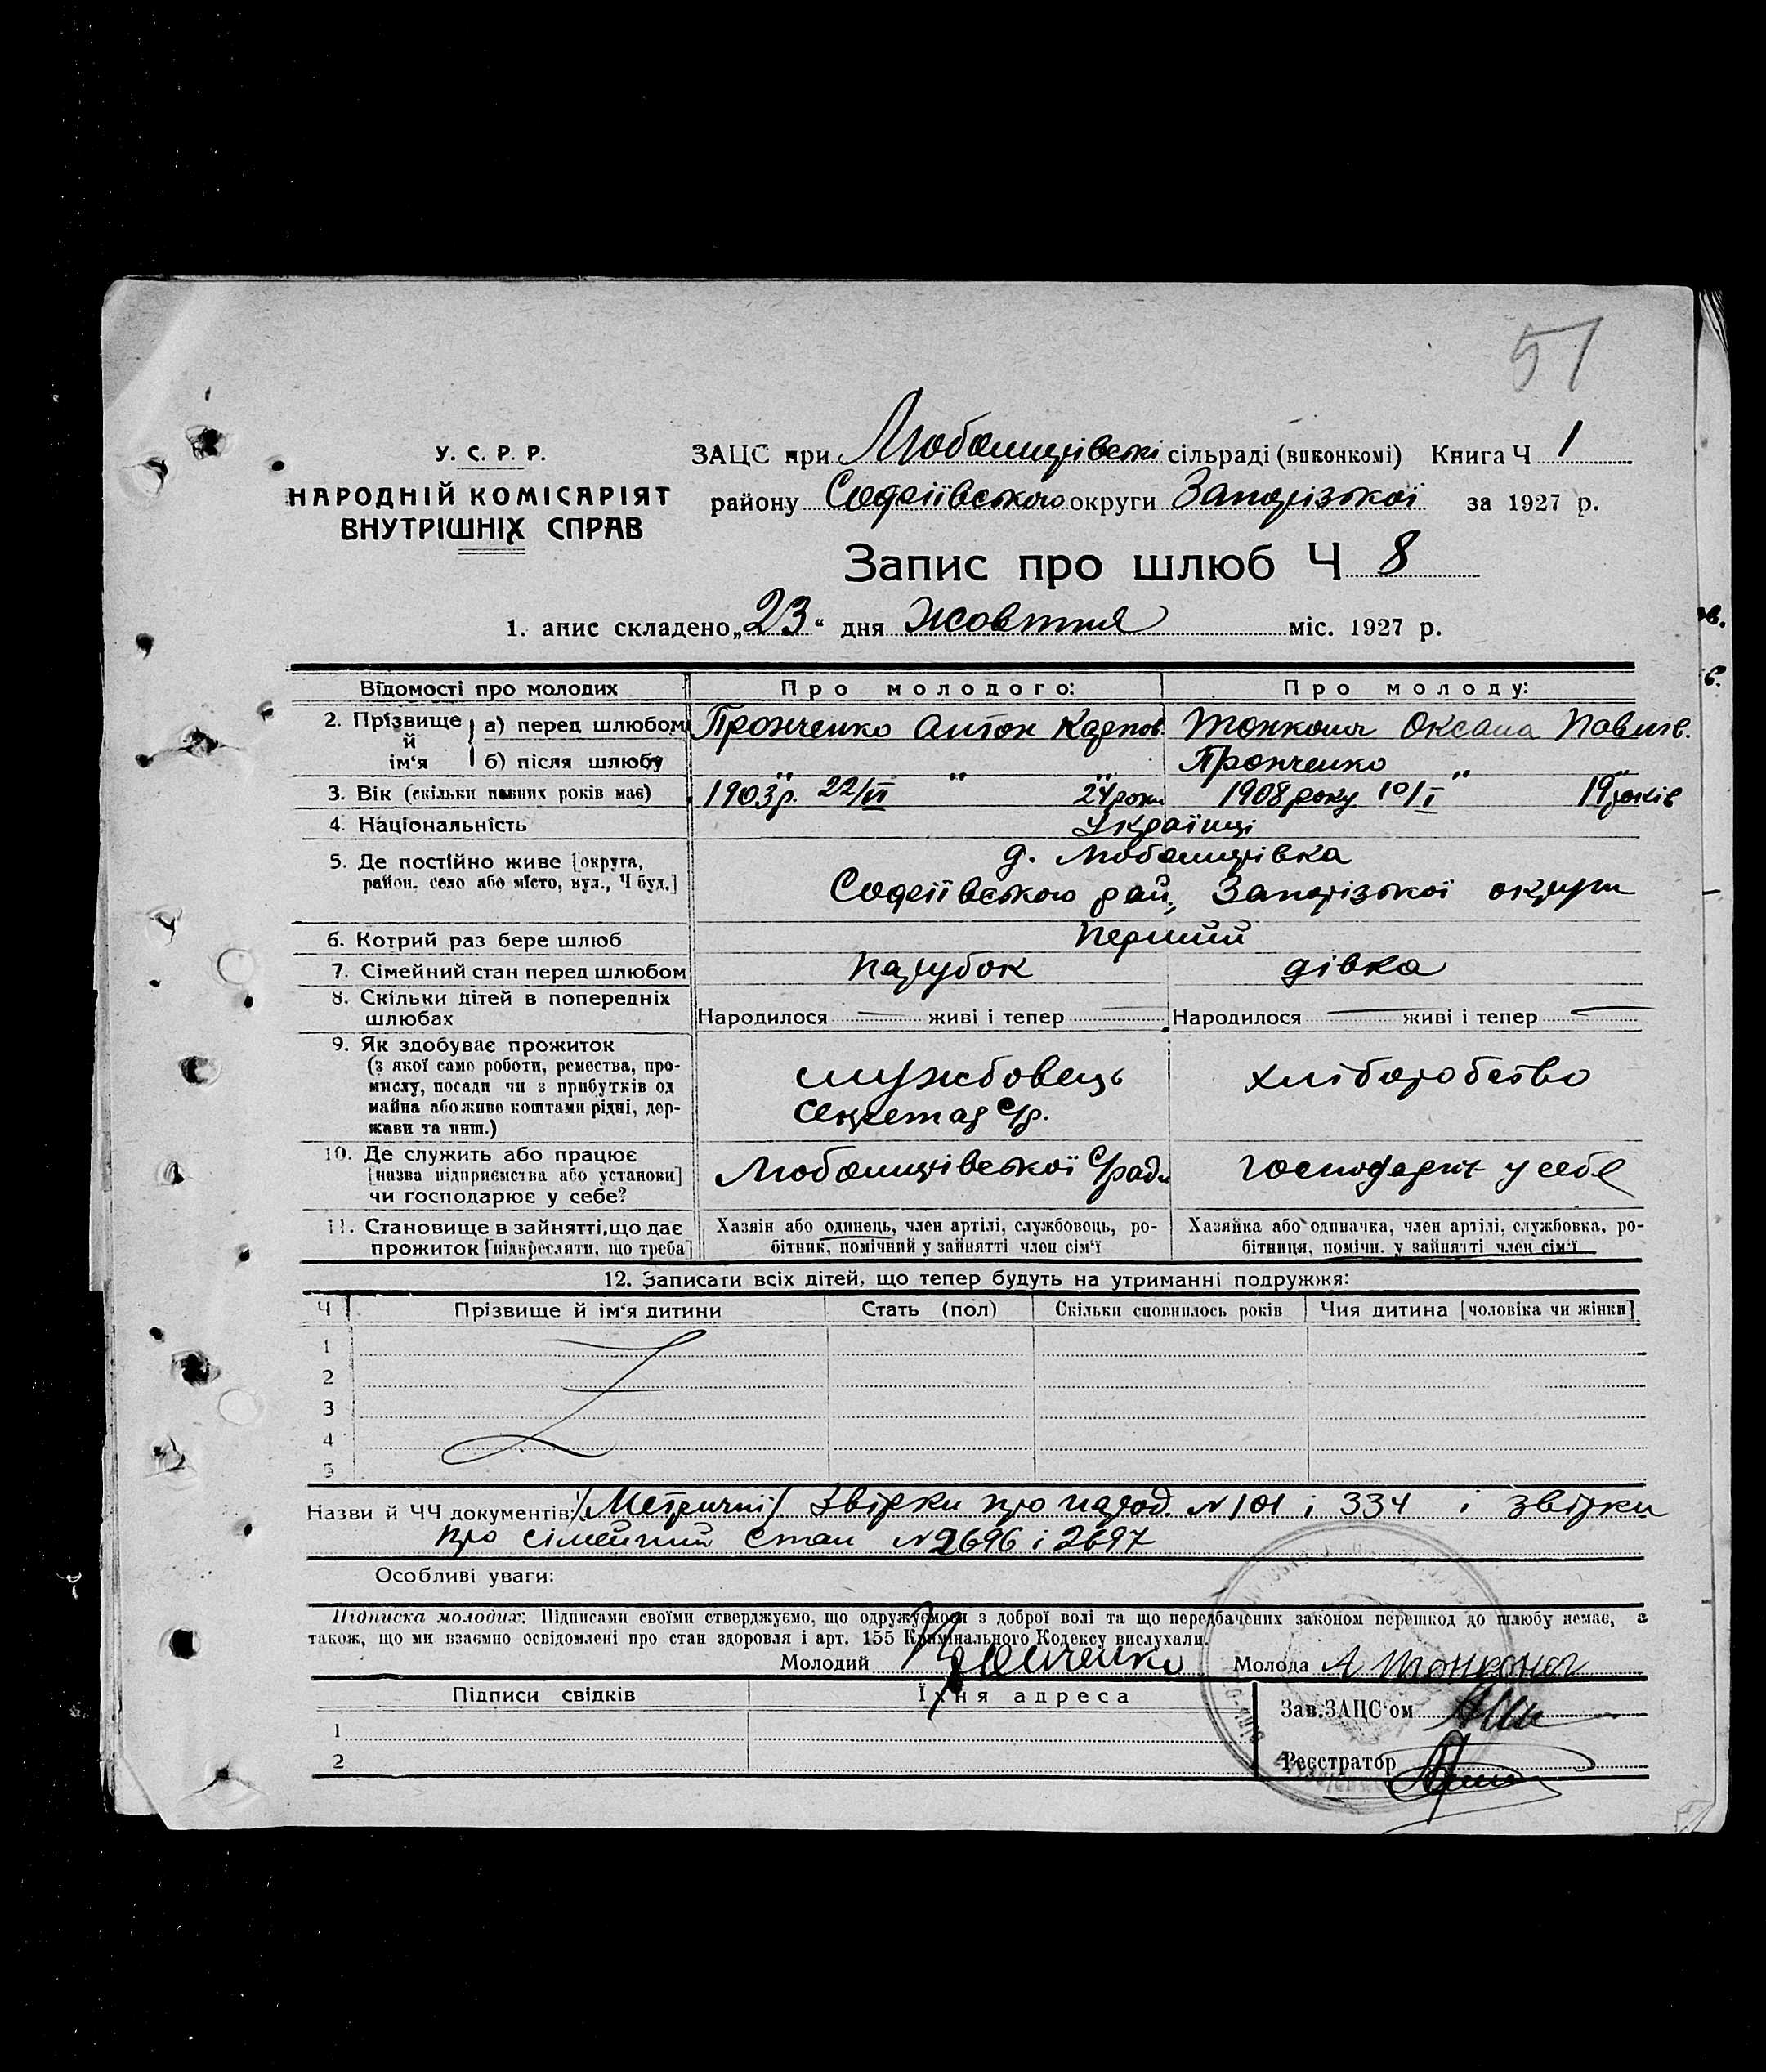 51
У. С. Р. Р.
НАРОДНІЙ КОМІСАРІЯТ
ВНУТРІШНІХ СПРАВ
ЗАЦС при Любомирівські сільраді (виконкомі) Книга Ч 1
району Софіївського округи Запорізької за 1927 р.
Запис про шлюб Ч 8
1. апис складено „23“ дня жовтня міс. 1927 р.
Відомості про молодих
Про молодого:
Про молоду:
2. Прізвище й ім‘я
а) перед шлюбом
Пронченко Антон Карпов.
Тонконог Оксана Павлів.
б) після шлюбу
" " "
Пронченко " "
3. Вік (скільки повних років має)
1903р. 22/VI 24 роки
1908 року 10/I 19 років
4. Національність
Українці
5. Де постійно живе [округа,
район, село або місто, вул., Ч буд.]
д. Любомирівка
Софіївського рай, Запорізької округи
6. Котрий раз бере шлюб
перший
7. Сімейний стан перед шлюбом
парубок
дівка
8. Скільки дітей в попередніх
шлюбах
Народилося — живі і тепер —
Народилося — живі і тепер —
9. Як здобуває прожиток
(з якої само роботи, ремества, про-
мислу, посади чи з прибутків од
майна або живе коштами рідні, дер-
жави та инш.)
службовець
секретар с/р.
хліборобство
10. Де служить або працює
[назва підприємства або установи]
чи господарює у себе?
Любомирівської с/ради
господарит у себе
11. Становище в зайнятті, що дає
прожиток [підкреслити, що треба]
Хазяін або одинець, член артілі, службовець, ро-
бітник, помічний у зайнятті член сім‘ї
Хазяйка або одиначка, член артілі, службовка, ро-
бітниця, помічн. у зайнятті член сім‘ї
12. Записати всіх дітей, що тепер будуть на утриманні подружжя:
Ч Прізвище й ім‘я дитини Стать (пол) Скільки сповнилось років Чия дитина [чоловіка чи жінки]
1
2
3
4
5
Назви й ЧЧ документів: /Метричні/. Звірки про народ. № 101 і 334 і звірки
про сімейний стан № 2696 і 2697
Особливі уваги:
Підписка молодих: Підписами своїми стверджуємо, що одружуємося з доброї волі та що передбачених законом перешкод до шлюбу немає, а
також, що ми взаємно освідомлені про стан здоровля і арт. 155 Кримінального Кодексу вислухали.
Молодий Пронченко Молода А Тонконог
Підписи свідків Їхня адреса
Зав. ЗАЦС‘ом
1
2
Реєстратор